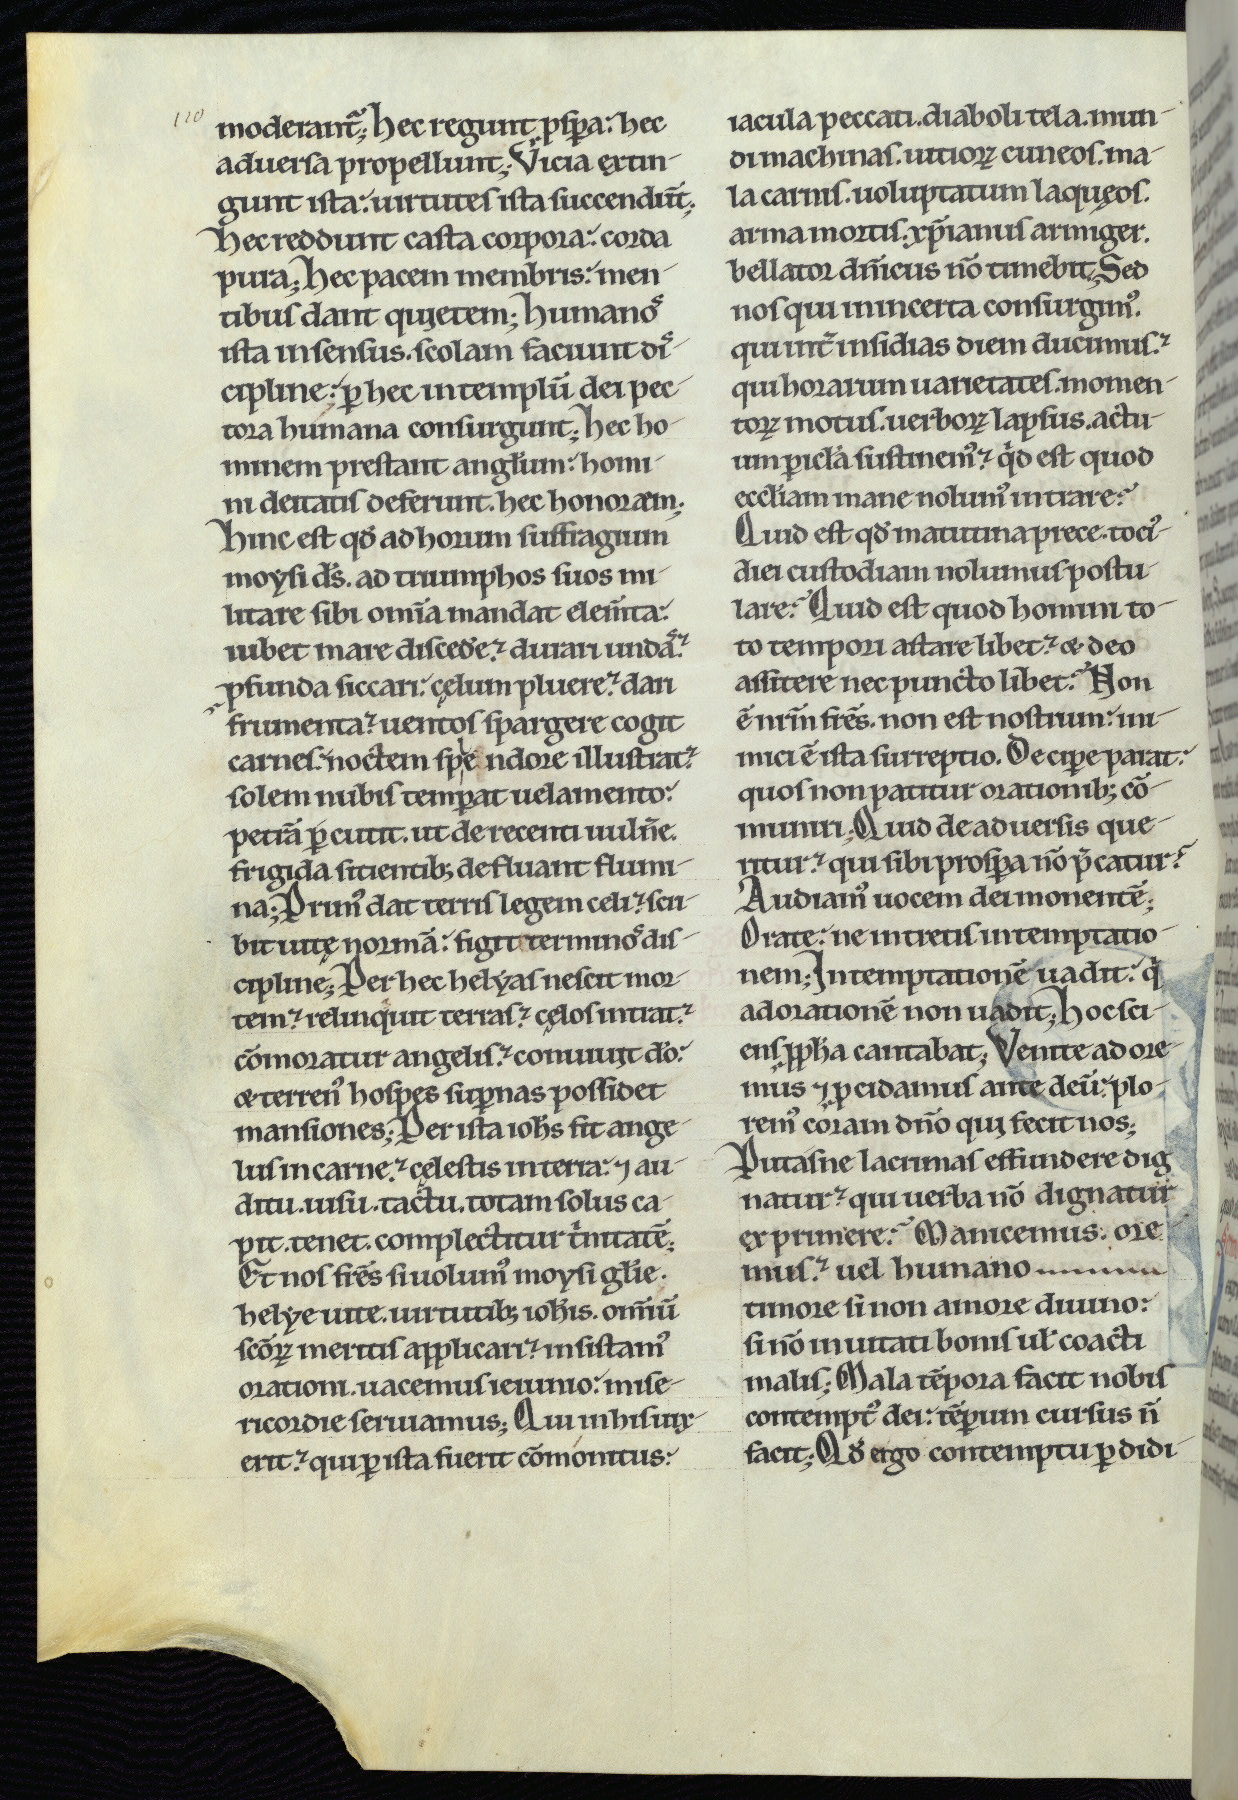 110
moderant᷑; hec regunt ꝓsꝑa: hec
aduersa propellunt; Vicia extin-
gunt ista: uirtutes ista succendūt;
hec reddunt casta corpora: corda
pura; hec pacem membris: men-
tibus dant quietem; humanoˢ
ista in sensus. scolam faciunt diˢ-
cipline: ꝑ hec in templū dei pec-
tora humana consurgunt; hec ho-
minem prestant angłum: homi-
ni deitatis deferunt. hec honorem;
hinc est qđ ad horum suffragium
moysi dˢ̄. ad triumphos suos mi-
litare sibi om̄ia mandat elem̄ta:
iubet mare disced̄e: durari undaˢ:
ꝓfunda siccari: cęlum pluere: dari
frumenta: uentos spargere cogit
carnes: noctem sple ndore illustrat:
solem nubis temꝑat uelamento:
petrā ꝑcutit. ut de recenti uuln̄e.
frigida sitientib; defluant flumi-
na; Primꝰ dat terris legem celi: scri-
bit uitę normā: figit terminoˢ dis-
cipline; Per hec helyas nescit mor-
tem: relinquit terras: cęlos intrat:
cōmoratur angelis: conuiuit dō:
& terrenꝰ hospes suꝑnas possidet
mansiones; Per ista ioh̄s fit ange-
lus in carne: cęlestis in terra: ⁊ au-
ditu. uisu. tactu. totam solus ca-
pit. tenet. complectitur tⁱnitatē;
Et nos fr̄es si uolumꝰ moysi glīe.
helye uite. uirtutib; ioh̄is. om̄iū
scōꝝ meritis applicari: insistamꝰ
orationi. uacemus ieiunio: mise-
ricordie seruiamus; Qui in his uix-
erit: qui ꝑ ista fuerit cōmonitus:
iacula peccati. diaboli tela. mun-
di machinas. uitioꝝ cuneos. ma-
la carnis. uoluptatum laquęos.
arma mortis. xp̄ianus armiger.
bellator dn̄icus nō timebit; Sed
nos qui in incerta consurgimꝰ.
qui int̄ insidias diem ducimus:
qui horarum uarietates. momen-
toꝝ motus. uerboꝝ lapsus. actu-
um ꝑicła sustinemꝰ: qⁱd est quod
eccłiam mane nolumꝰ intrare:
Quid est qđ matutina prece. tociꝰ
diei custodiam nolumus postu-
lare: Quid est quod homini to-
to tempori astare libet: & deo
assistere nec puncto libet: Non
ē nr̄m fr̄es. non est nostrum: ini-
mici ē ista surreptio. Deciꝑe parat:
quos non patitur orationib; cō-
muniri; Quid de aduersis que-
ritur: qui sibi prosꝑa nō p̄catur:
Audiamꝰ uocem dei monentē;
Orate: ne intretis in temptatio-
nem; In temptationē uadit: qⁱ
ad orationē non uadit; hoc sci-
ens ꝓph̄a cantabat; Venite adore-
mus ⁊ ꝓcidamus ante deū: plo-
remꝰ coram dn̄o qui fecit nos;
Putasne lacrimas effundere dig
natur: qui uerba nō dignatur
exprimere: Manicemus: ore
mus: uel humano
timore si non amore diuino:
si nō inuitati bonis uł coacti
malis; Mala tēpora facit nobis
contemptꝰ dei: tēꝑum cursus n̄
facit; Qđ ergo contemptu ꝑdidi-